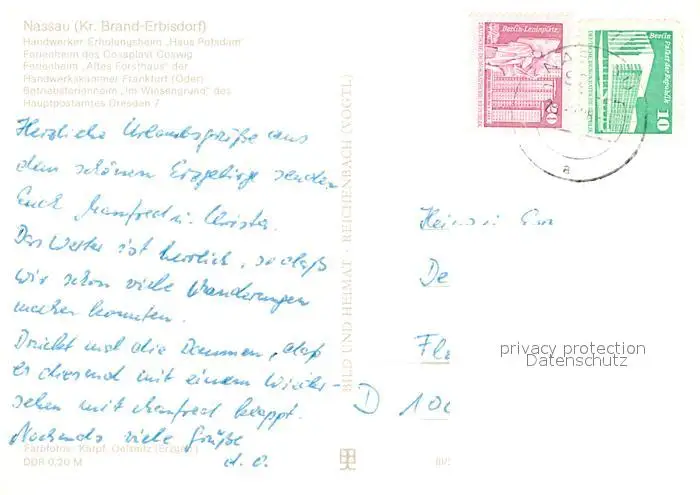 Nassau (Kr. Brand-Erbisdorf)
Handwerker Erholungsheim „Haus Potsdam"
Ferienheim des Cosaplast Coswig
Ferienheim „Altes Forsthaus" der
Handwerkskammer Frankfurt (Oder)
Betriebsferienheim „Im Wiesengrund" des
Hauptpostamtes Dresden 7
Herzliche Urlaubsgrüße aus
dem schönen Erzgebirge senden
Euch Manfred u. Christa.
Das Wetter ist herrlich, so daß
wir schon viele Wanderungen
machen konnten.
Drückt mal die Daumen, daß
es diesmal mit einem Wieder-
sehen mit Manfred klappt.
Nochmals viele Grüße
d. O.
Farbfotos: Karpf, Oelsnitz (Erzgeb.)
DDR 0,20 M
BILD UND HEIMAT · REICHENBACH (VOGTL)
III/
Berlin-Leninplatz
DEUTSCHE DEMOKRATISCHE REPUBLIK
20
Berlin, Palast der Republik
DEUTSCHE DEMOKRATISCHE REPUBLIK
10
a
De
Fl
D 100
privacy protection
Datenschutz